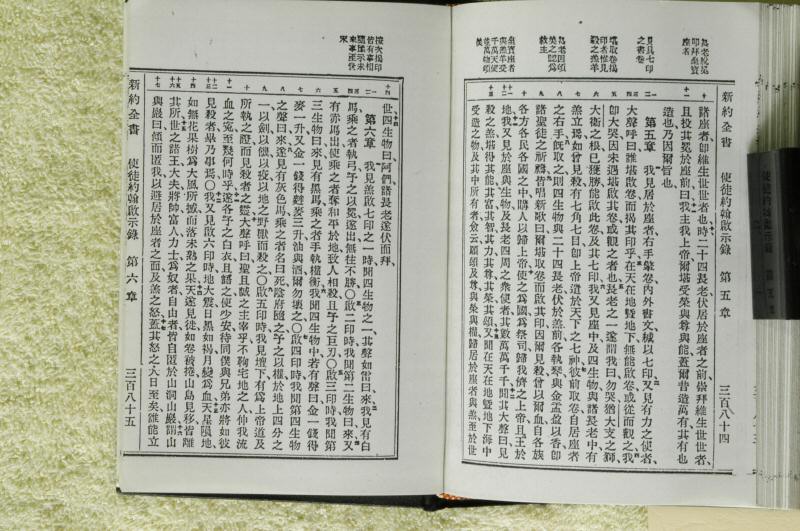 見具七印
之書卷
堪取卷揭
印者惟見
殺之羔羊
坐寶座者
與羔羊受
諸座者卽維生世世者也時二十四長老伏居於座者之前崇拜維生世世者、
且投其冕於座前曰我主我上帝爾堪受榮與尊與能蓋爾昔造萬有其有也
造也乃因爾旨也
第五章 我見居於座者右手、有卷內外書文緘以七印又見有力之使者
大聲呼曰誰堪啟卷而揭其印乎在天在地曁地下無能啟卷或從而觀之我
卽大哭因未遇堪啟其卷或觀之者也長老之一遂謂我曰勿哭猶大支之獅
大衛之根已獲勝能啟此卷及其七印我又見座中及四生物與諸長老中有
羔立焉如曾見殺有七角七目卽上帝遣於天下之七神彼前取卷自居座者
之右手旣取之則四生物與二十四長老伏於羔前各執琴與金盂盈以香卽
諸聖徒之祈禱皆唱新歌曰爾堪取卷而啟其印因爾見殺曾以爾血自各族
各方各民各國之中購人以歸上帝使之爲國爲祭司歸我儕之上帝且王於
地我又見於座與生物及長老四周之衆使者其數萬萬千千聞其大聲曰見
殺之羔堪得其能其富其智其力其尊其榮其頌又聞在天在地曁地下海中
受造之物及其中所有者僉云願頌及尊與榮與權歸居於座者與羔至於世
新約全書 使徒約翰啟示錄 第五章 三百八十四
挨次揭印
皆有事相
世四生物曰阿們諸長老遂伏而拜
第六章 我見羔啟七印之一時聞四生物之一其聲如雷曰來我見有白
馬乘之者執弓予之以冕遂出無往不勝〇啟二印時我聞第二生物曰來又
有赤馬出使乘之者奪和平於地致人相殺且予之巨刃〇啟三印時我聞第
三生物曰來見有黑馬乘之者手執權衡我聞四生物中若有聲曰金一錢得
麥一升又金一錢得麰麥三升油與酒爾勿壞之〇啟四印時我聞第四生物
之聲曰來遂見有灰色馬乘之者名曰死陰府隨之予之以權於地上四分之
一以劍以饑以疫以地之野獸而殺之〇啟五印時我見壇下有爲上帝道及
所執之證而見殺者之靈大聲呼曰聖且誠之主宰乎不鞫宅地之人伸我流
血之冤至幾何時乎遂各予之白衣且語之使少安待同僕與兄弟亦將如彼
見殺者咸乃畢焉〇我又見啟六印時地大震日黑如褐月變爲血天星隕地、
如無花果樹爲大風所撼而落未熟之果天遂見徙如卷被捲山島見移皆離
其所世之諸王大夫將帥富人力士爲奴者自由者皆自匿於山洞山巖謂山
與巖曰傾而匿我以避居於座者之面及羔之怒蓋其怒之大日至矣誰能立
新約全書 使徒約翰啟示錄 第六章 三百八十五